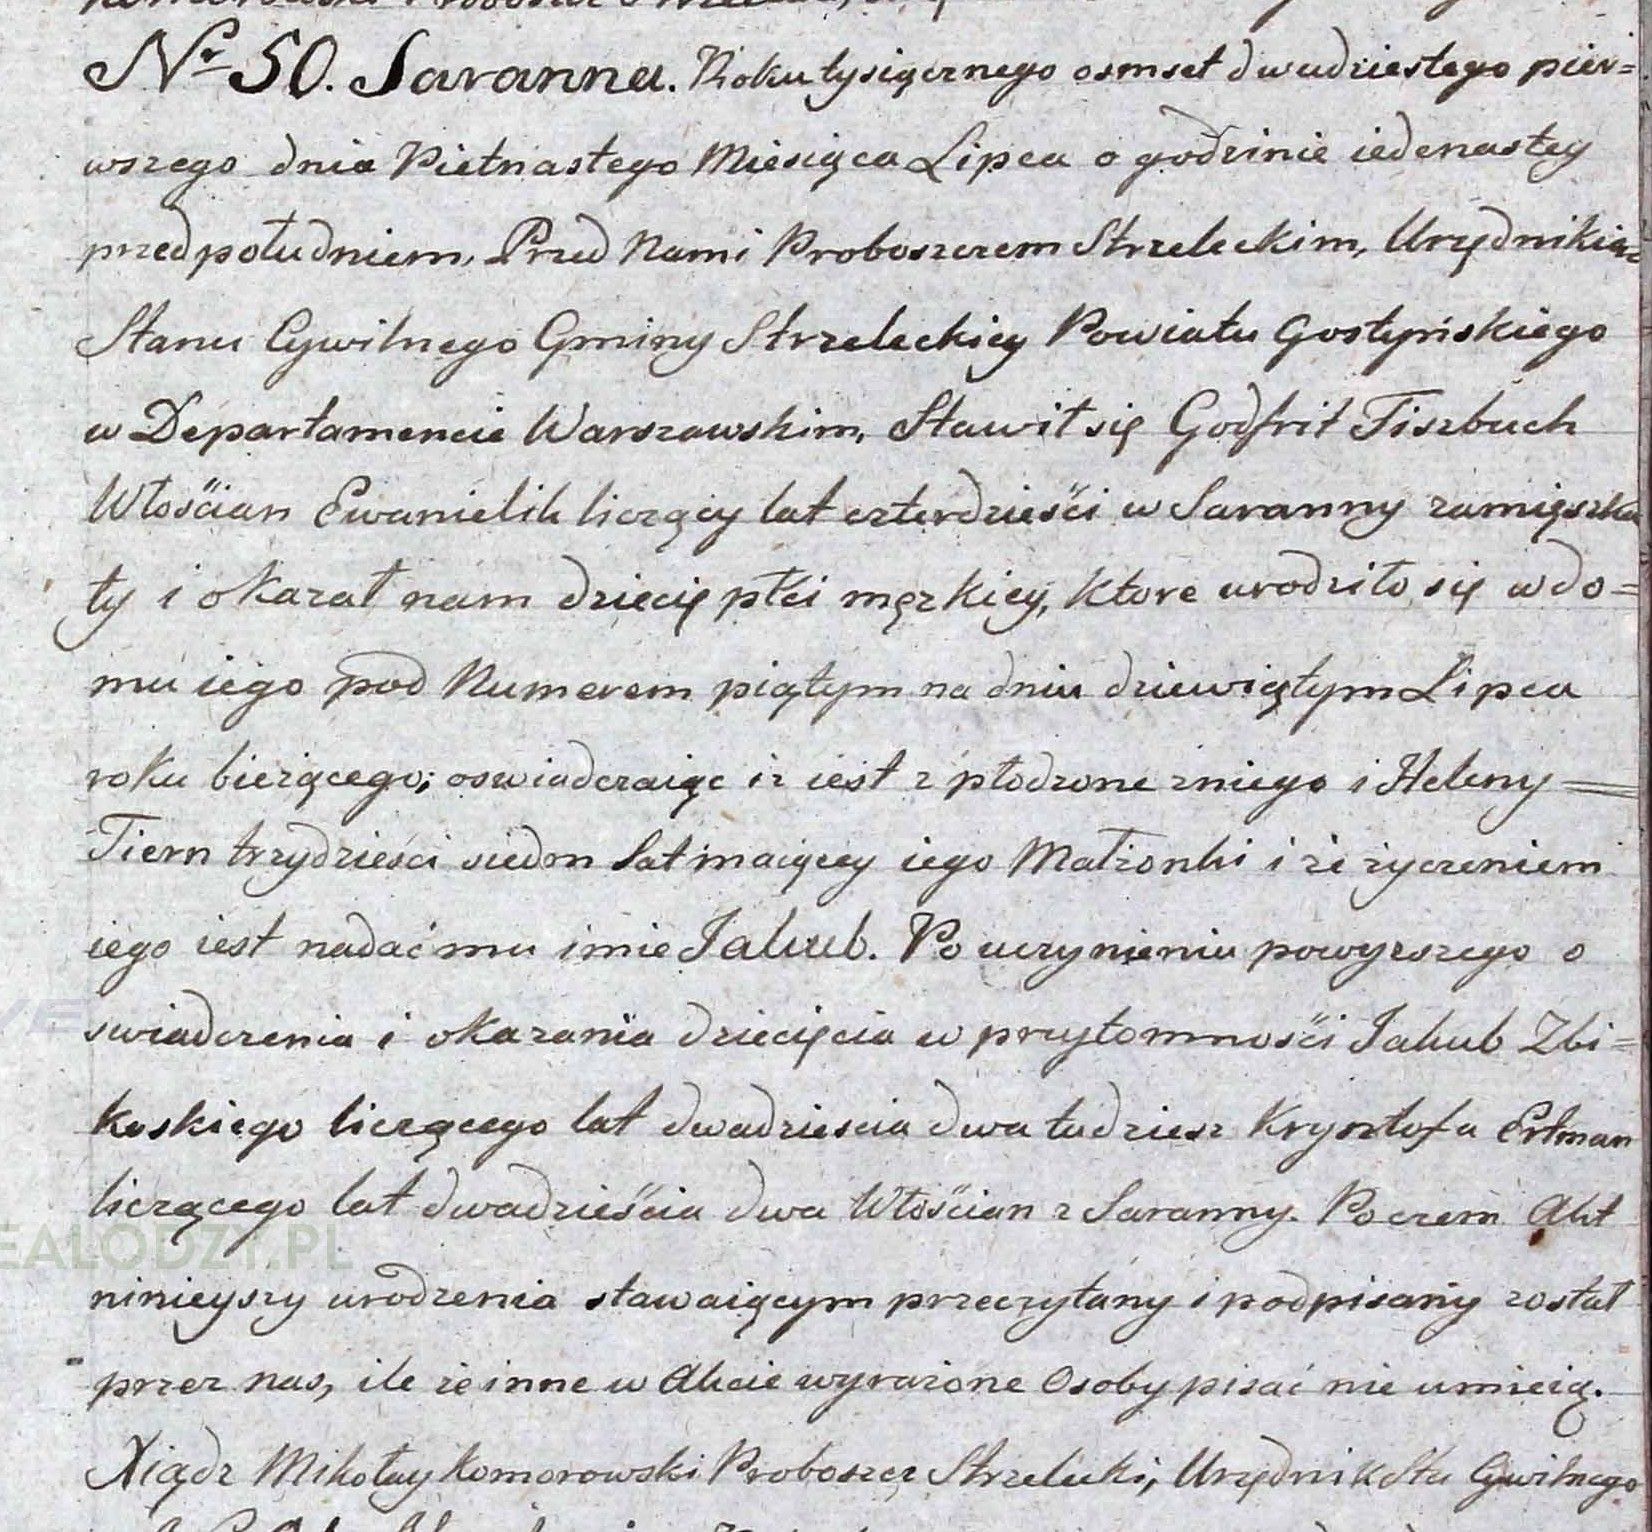 Nr 50. Saranna. Roku tysiącznego osmset dwudziestego pier=
wszego dnia Pietnastego Miesiąca Lipca o godzinie iedenastey
przed południem, Przed Nami Proboszczem Strzeleckim, Urzędnikiem
Stanu Cywilnego Gminy Strzeleckiey Powiatu Gostyńskiego
w Departamencie Warszawskim, Stawił się Godfrit Fiszbuch
Włościan Ewanielik liczący lat czterdzieści w Saranny zamięszka
ły i okazał nam dziecię płci męzkiey, które urodziło się w do=
mu iego pod Numerem piątym na dniu dziewiątym Lipca
roku bieżącego; oswiadczaiąc iż iest zpłodzone zniego i Heleny =
Tiern trzydzieści siedm lat maiącey iego Małżonki i że życzeniem
iego iest nadać mu imie Jakub. Po uczynieniu powyższego o
swiadczenia i okazania dziecięcia w przytomności Jakub Zbi=
koskiego liczącego lat dwadzieścia dwa tudziesz Krysztofa Ertman
liczącego lat dwadzieścia dwa Włościan z Saranny. Poczem Akt
ninieyszy urodzenia stawaiącym przeczytany i podpisany został
przez nas, ile że inne w Akcie wyrażone Osoby pisać nie umieią.
Xiądz Mikołay Komorowski Proboszcz Strzelecki, Urzędnik Stu Cywilnego
EALODZY.PL